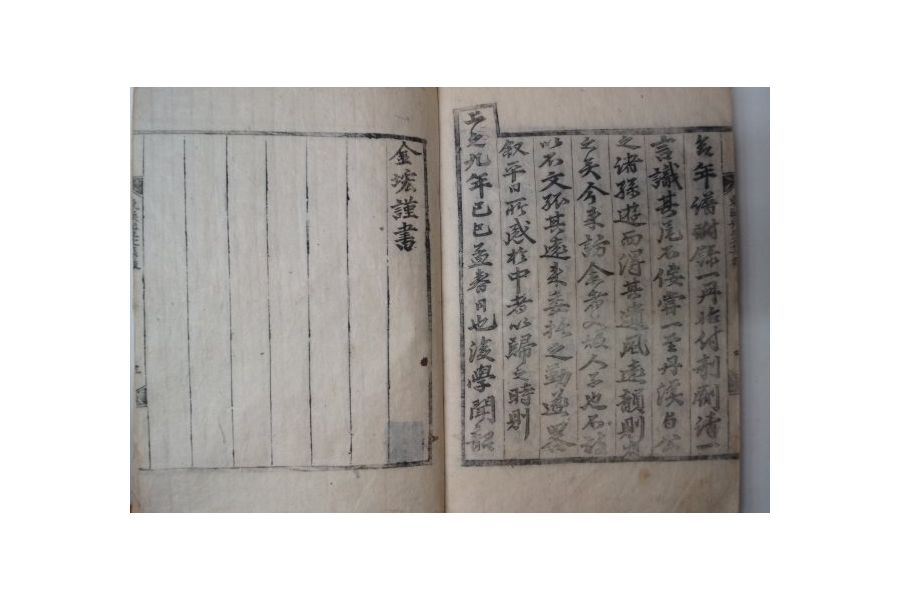 年譜附錄一冊 付剞劂請一
言識其尾不佞嘗一至丹溪 公
之諸孫遊而得其遺風遠韻則
之矣今來訪余者又故人子也不
以不文孤其遠來委托之勤遂畧
叙平日所感於中者以歸之時則
上之九年己巳孟春日也後學聞韶
金㙆謹書